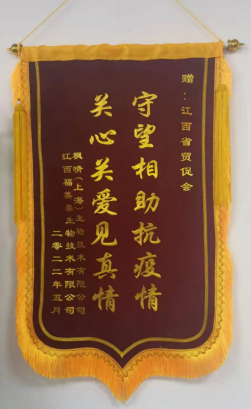 赠：江西省贸促会
守望相助抗疫情
关心关爱见真情
枫情（上海）生物技术有限公司
江西福美泰生物技术有限公司
二零二二年五月